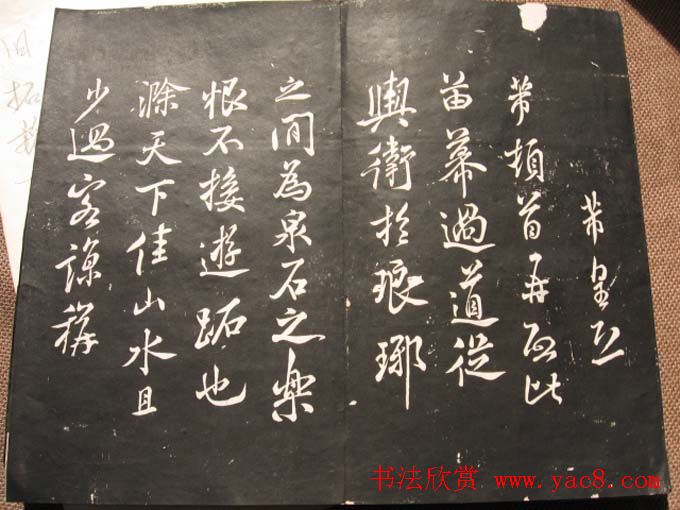 芾皇恐
芾頓首再啟此
苗幕過道從
輿衛於琅琊
之間為泉石之樂
恨不接遊跖也
滁天下佳山水且
少過客諒稱
旧拓
书法欣赏 www.yac8.com